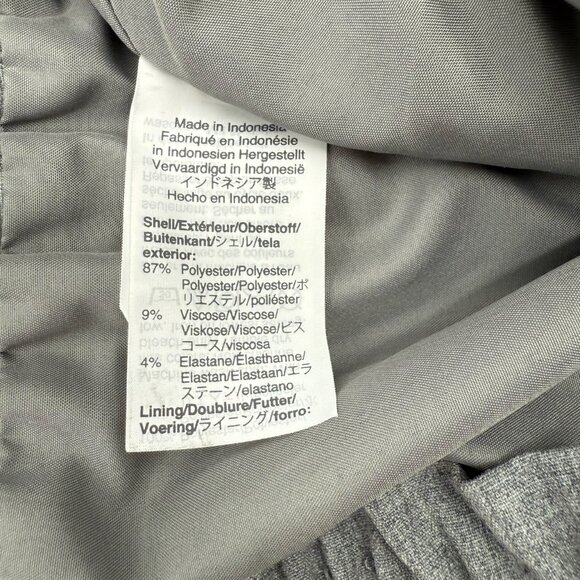 Made in Indonesia
Fabriqué en Indonésie
in Indonesien Hergestellt
Vervaardigd in Indonesië
インドネシア製
Hecho en Indonesia
Shell/Extérieur/Oberstoff/
Buitenkant/シェル/tela
exterior:
87% Polyester/Polyester/
Polyester/Polyester/ポ
リエステル/poliéster
9% Viscose/Viscose/
Viskose/Viscose/ビス
コース/viscosa
4% Elastane/Élasthanne/
Elastan/Elastaan/エラ
ステーン/elastano
Lining/Doublure/Futter/
Voering/ライニング/forro: